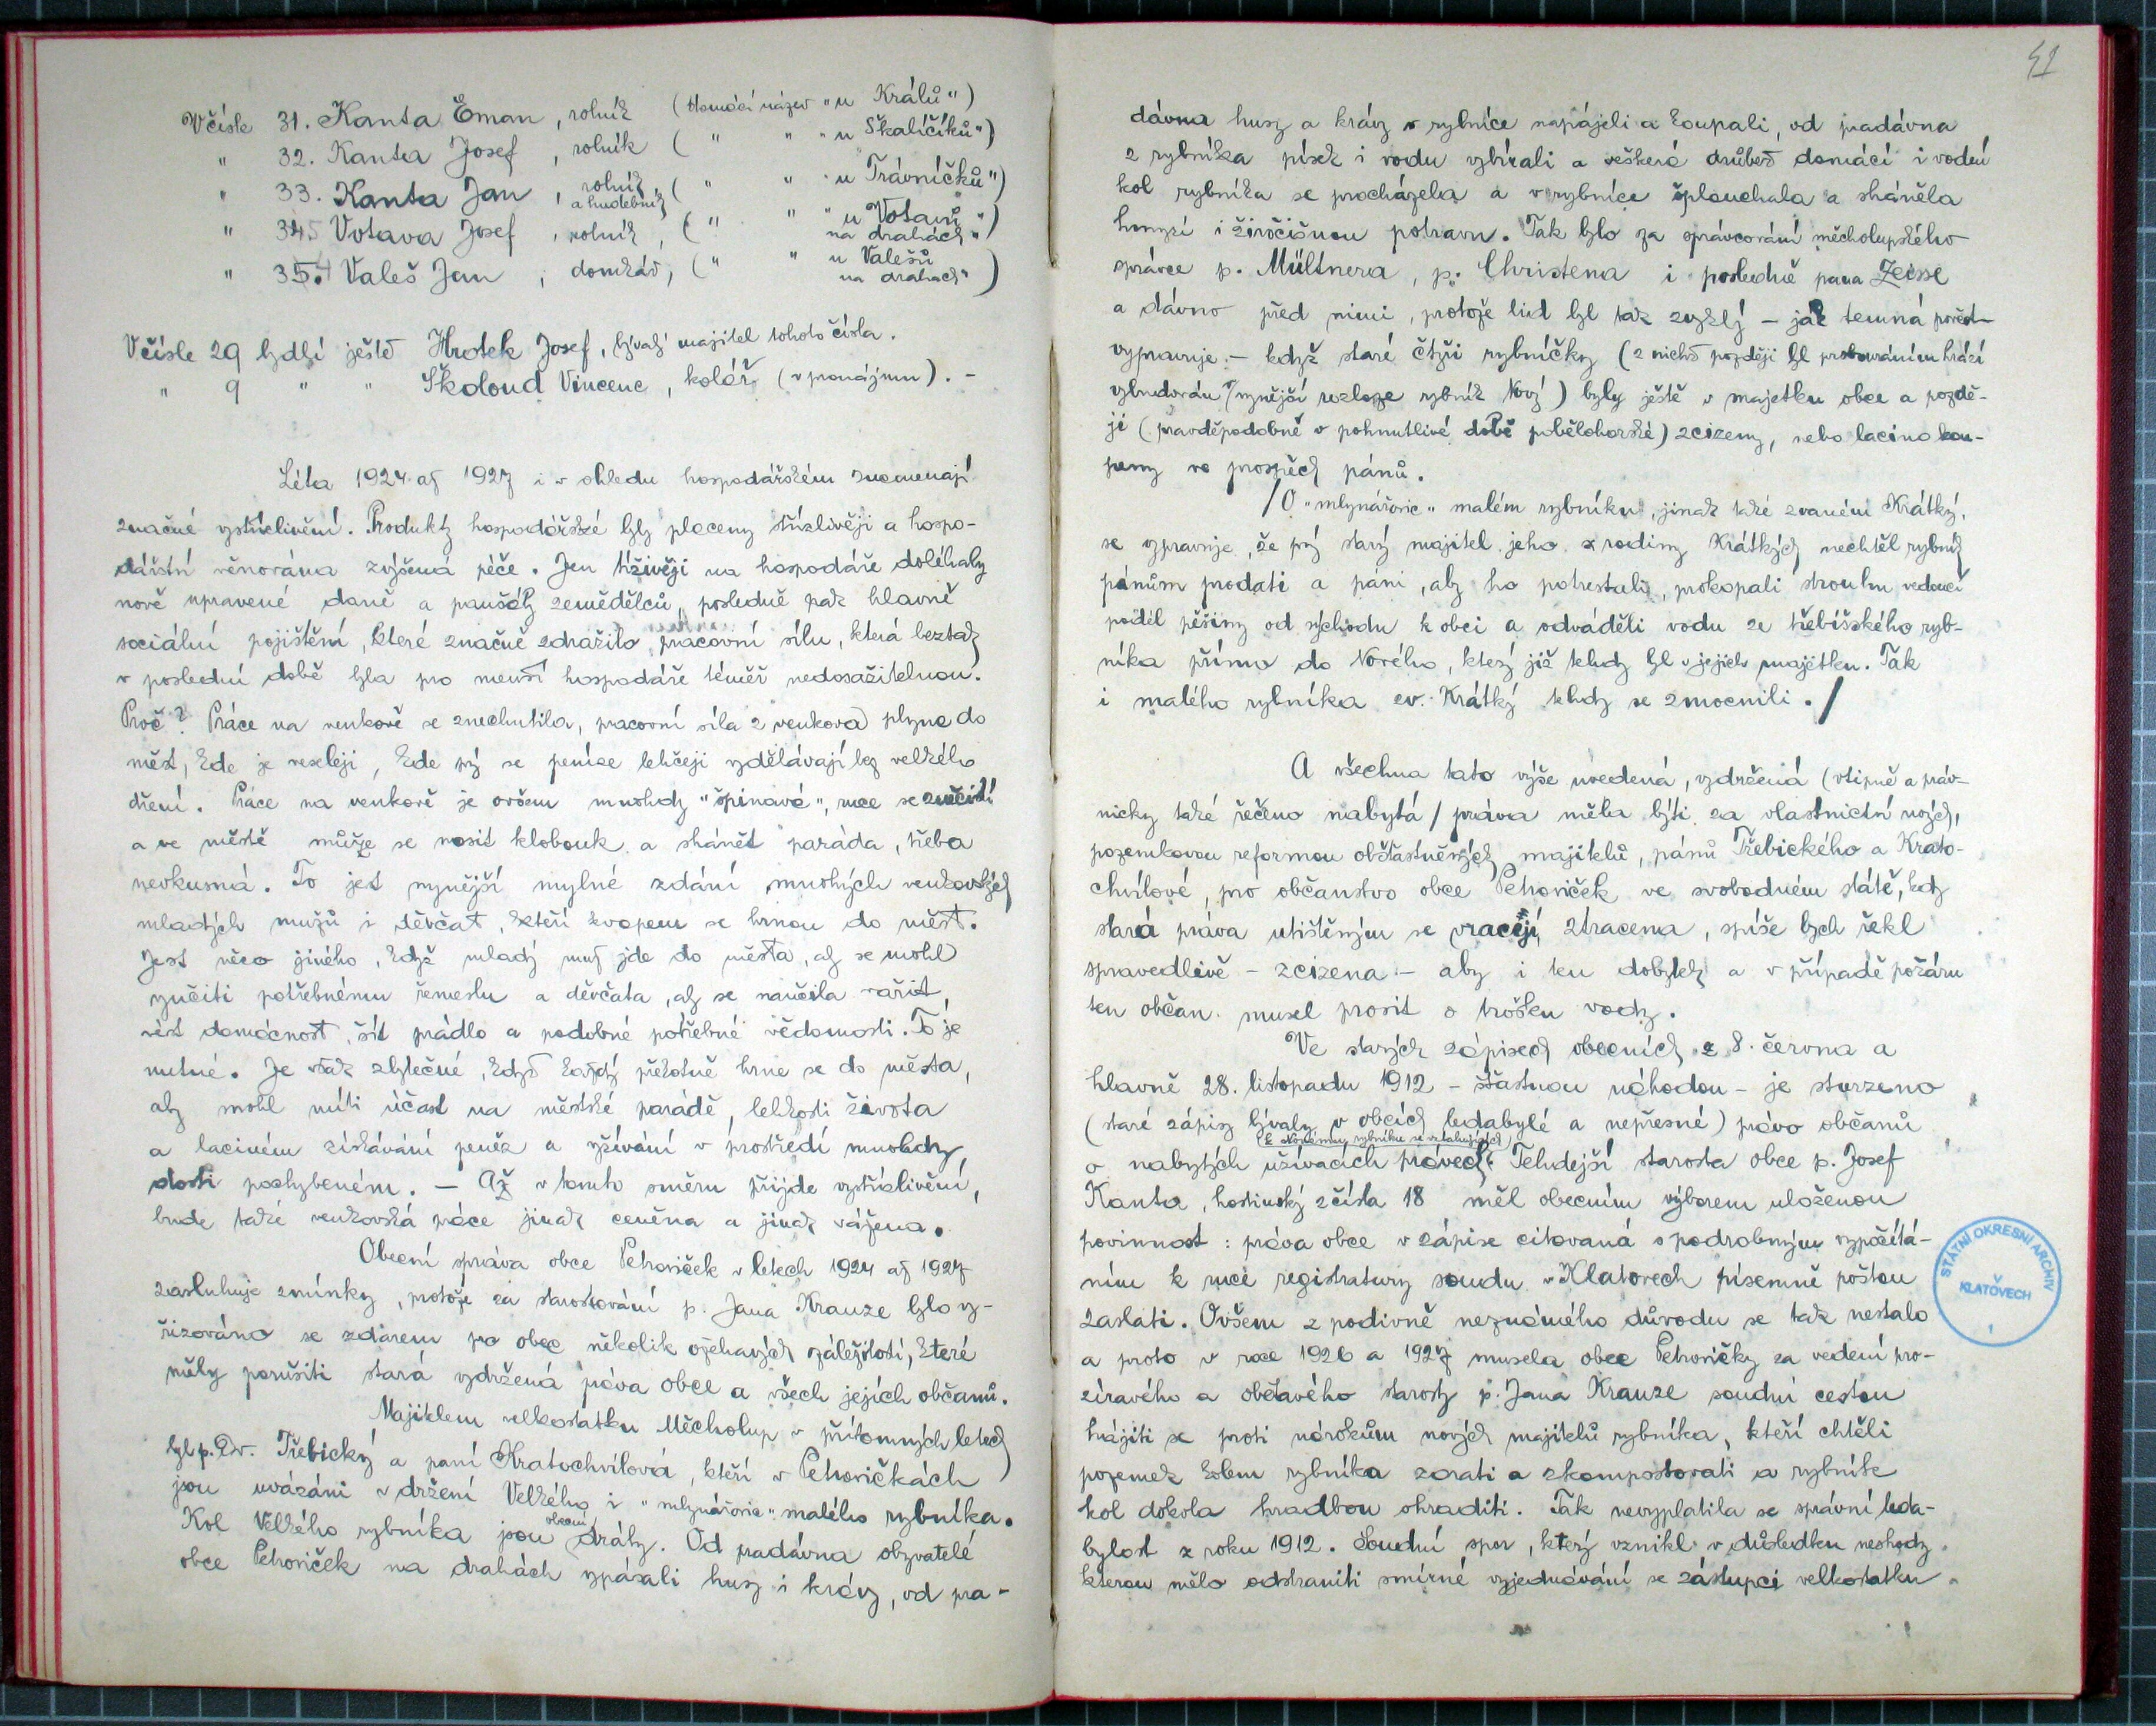 V čísle 31. Kanta Eman, rolník (domácí název "u Králů")
" 32. Kanta Josef, rolník ( " " "u Skalíčíků")
" 33. Kanta Jan, rolník, a hudebník ( " " "u Trávníčků")
" 345 Votava Josef, rolník, ( " " "u Votavů na drahách")
" 35.4 Valeš Jan, domkář, ( " " "u Valešů na drahách")
V čísle 29 bydlí ještě Hrotek Josef, bývalý majitel tohoto čísla.
" 9 " " Školoud Vincenc, kolář (v pronájmu). -
Léta 1924 až 1927 i v ohledu hospodářském znamenají
značné vystřízlivění. Produkty hospodářské byly placeny střízlivěji a hospo-
dářství věnována zvýšená péče. Jen tíživěji na hospodáře doléhaly
nově upravené daně a paušály zemědělců, posledně pak hlavně
sociální pojištění, které značně zdražilo pracovní sílu, která beztak
v poslední době byla pro menší hospodáře téměř nedosažitelnou.
Proč? Práce na venkově se znechutila, pracovní síla z venkova plyne do
měst, kde je veseleji, kde prý se peníze lehčeji vydělávají bez velkého
dření. Práce na venkově je ovšem mnohdy "špinavá", ruce se znečistí
a ve městě může se nosit klobouk a shánět paráda, třeba
nevkusná. To jest nynější mylné zdání mnohých venkovských
mladých mužů i děvčat, kteří kvapem se hrnou do měst.
Jest něco jiného, když mladý muž jde do města, aby se mohl
vyučiti potřebnému řemeslu a děvčata, aby se naučila vařit,
vést domácnost, šít prádlo a podobné potřebné vědomosti. To je
nutné. Je však zbytečné, když každý překotně hrne se do města,
aby mohl míti účast na městské parádě, lehkosti života
a laciném získávání peněz a užívání v prostředí mnohdy
dosti pochybeném. - Až v tomto směru přijde vystřízlivění,
bude také venkovská práce jinak ceněna a jinak vážena.
Obecní správa obce Petroviček v letech 1924 až 1927
zasluhuje zmínky, protože za starostování p. Jana Krauze bylo vy-
řizováno se zdarem pro obec několik ožehavých záležitostí, které
měly porušiti stará vydržená práva obce a všech jejích občanů.
Majitelem velkostatku Měcholup v přítomných letech
byl p. Dr. Třebický a paní Kratochvílová, kteří v Petrovičkách
jsou uvázáni v držení Velkého i "mlynářovic" malého rybníka.
Kol Velkého rybníka jsou obecní dráhy. Od pradávna obyvatelé
obce Petroviček na drahách vypásali husy i krávy, od pra-
41
dávna husy a krávy v rybníce napájeli a koupali, od pradávna
z rybníka písek i vodu vybírali a veškerá drůbež domácí i vodní
kol rybníka se procházela a v rybníce šplouchala a sháněla
hmyzí i živočišnou potravu. Tak bylo za správcování měcholupského
správce p. Müllnera, p. Christena i posledně pana Zeisse
a dávno před nimi, protože lid byl tak zvyklý - jak temná pověst
vypravuje - když staré čtyři rybníčky (z nichž později byl probouráním hrází
vybudován nynější rozloze rybník Nový) byly ještě v majetku obce a pozdě-
ji (pravděpodobně v pohnutlivé době pobělohorské) zcizeny, nebo lacino kou-
peny ve prospěch pánů.
/O "mlynářovic" malém rybníku, jinak také zvaném Krátký,
se vypravuje, že prý starý majitel jeho z rodiny Krátkých nechtěl rybník
pánům prodati a páni, aby ho potrestali, prokopali strouhu vedoucí
podél pěšiny od východu k obci a odváděli vodu ze třebíšského ryb-
níka přímo do Nového, který již tehdy byl v jejich majetku. Tak
i malého rybníka zv. Krátký tehdy se zmocnili./
A všechna tato výše uvedená, vydržená (vtipně a práv-
nicky také řečeno nabytá/ práva měla býti za vlastnictví nových,
pozemkovou reformou obšťastněných majitelů, pánů Třebického a Krato-
chvílové, pro občanstvo obce Petroviček ve svobodném státě, kdy
stará práva utištěným se vracejí, ztracena, spíše bych řekl
spravedlivě - zcizena - aby i ku dobytky a v případě požáru
ten občan musel prosit o trošku vody.
Ve starých zápisech obecních z 8. června a
hlavně 28. listopadu 1912 - šťastnou náhodou - je stvrzeno
(staré zápisy bývaly v obcích ledabylé a nepřesné) právo občanů
(k Novému rybníku se vztahujících)
o nabytých užívacích právech. Tehdejší starosta obce p. Josef
Kanta, hostinský z čísla 18 měl obecním výborem uloženou
povinnost: práva obce v zápise citovaná s podrobným vypočítá-
ním k ruce registratury soudu v Klatovech písemně poštou
zaslati. Ovšem z podivně neznámého důvodu se tak nestalo
a proto v roce 1926 a 1927 musela obec Petrovičky za vedení pro-
zíravého a obětavého starosty p. Jana Krauze soudní cestou
hájiti se proti nárokům nových majitelů rybníka, kteří chtěli
pozemek kolem rybníka zorati a zkompostovati a rybník
kol dokola hradbou ohraditi. Tak nevyplatila se správní leda-
bylost z roku 1912. Soudní spor, který vznikl v důsledku neshody
kterou mělo odstraniti smírné vyjednávání se zástupci velkostatku
STÁTNÍ OKRESNÍ ARCHIV
KLATOVECH
1